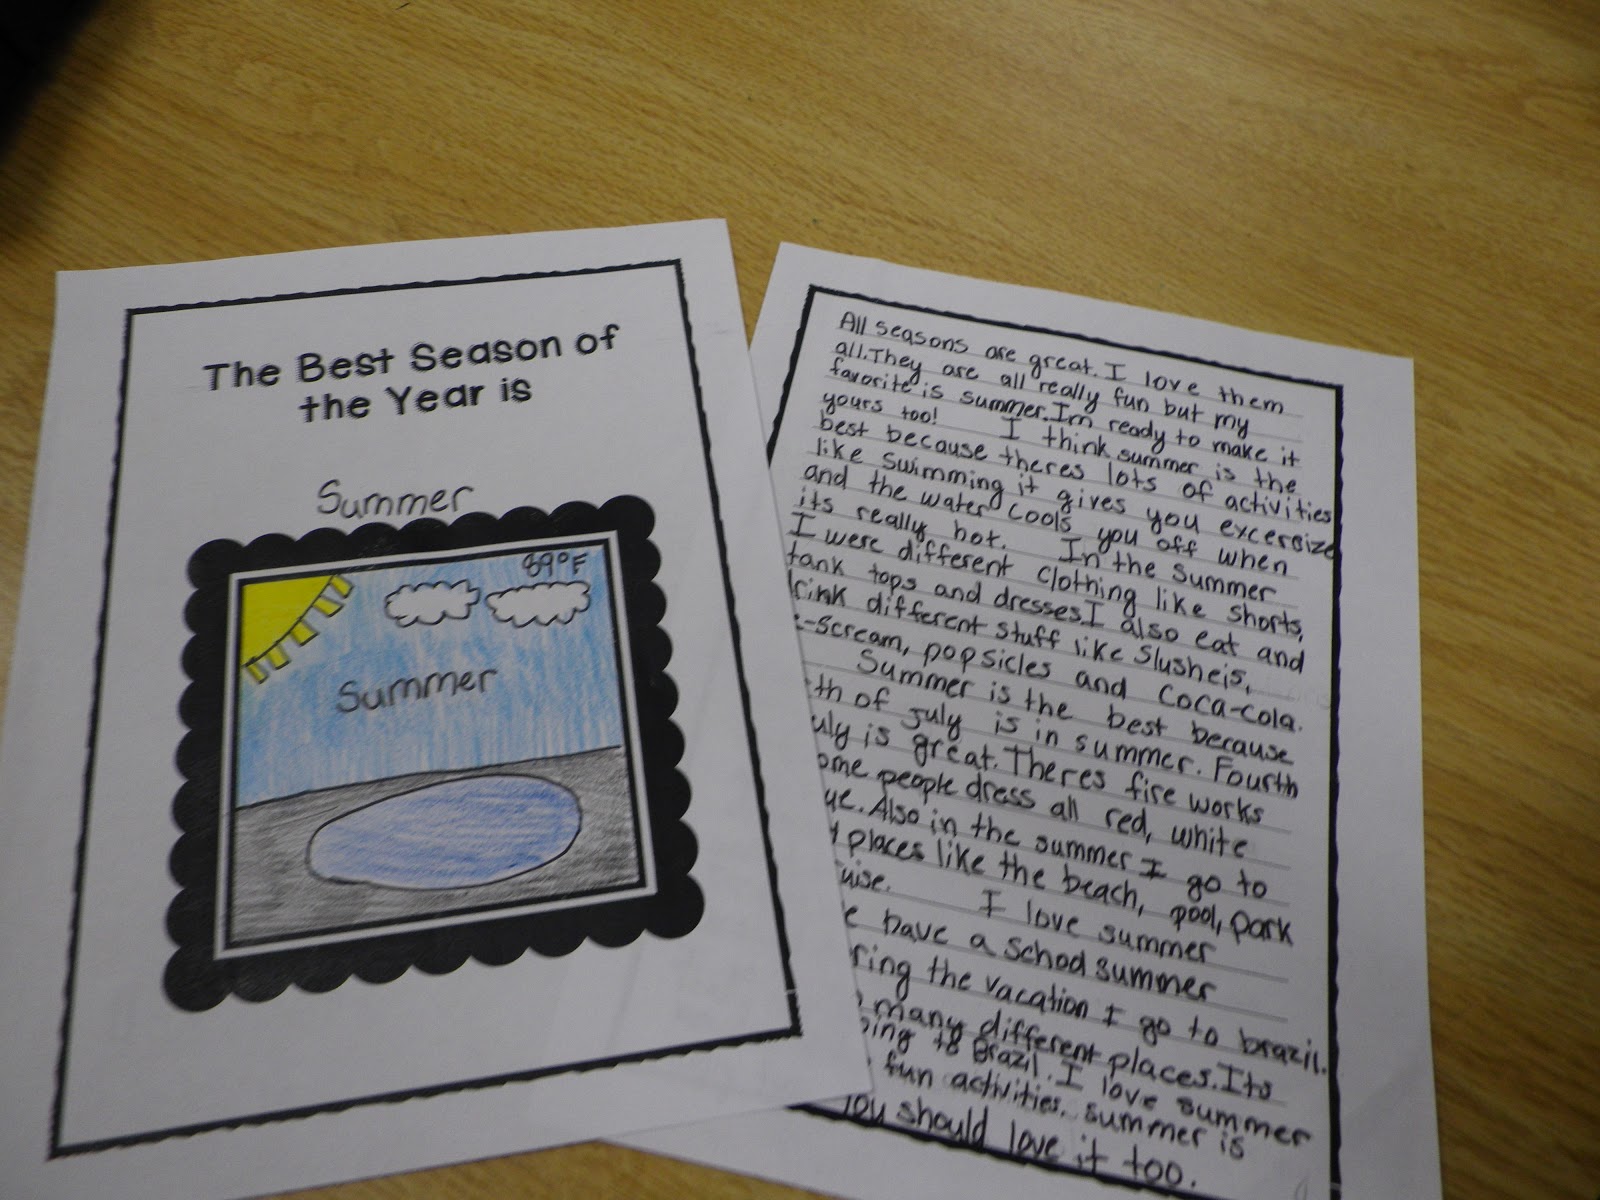 The Best Season of
the Year is
Summer
89°F
Summer
All seasons are great. I love them
all. They are all really fun but my
favorite is summer. Im ready to make it
yours too! I think summer is the
best because theres lots of activities
like swimming it gives you excersize
and the water cools you off when
its really hot. In the summer
I were different clothing like shorts,
tank tops and dresses. I also eat and
different stuff like Slusheis,
popsicles and Coca-cola.
Summer is the best because
of july is in summer. Fourth
is great. Theres fire works
people dress all red, white
Also in the summer I go to
places like the beach, pool, park
I love summer
have a school summer
the vacation I go to brazil.
many different places. Its
to Brazil. I love summer
fun activities. summer is
you should love it too.